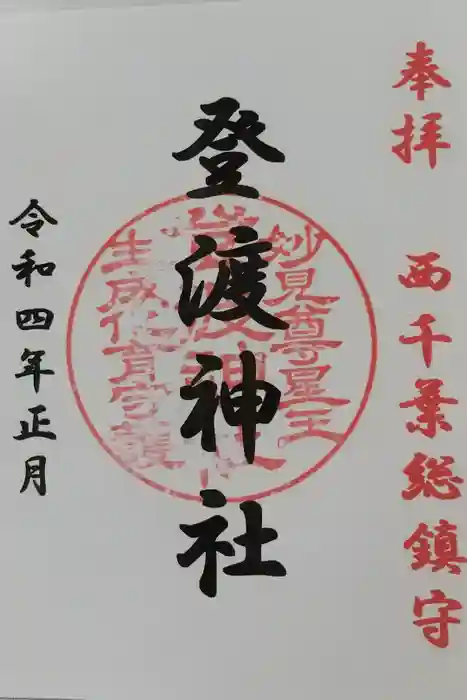 奉拝 西千葉総鎮守
登渡神社
妙見尊星王
生成化育守護
令和四年正月